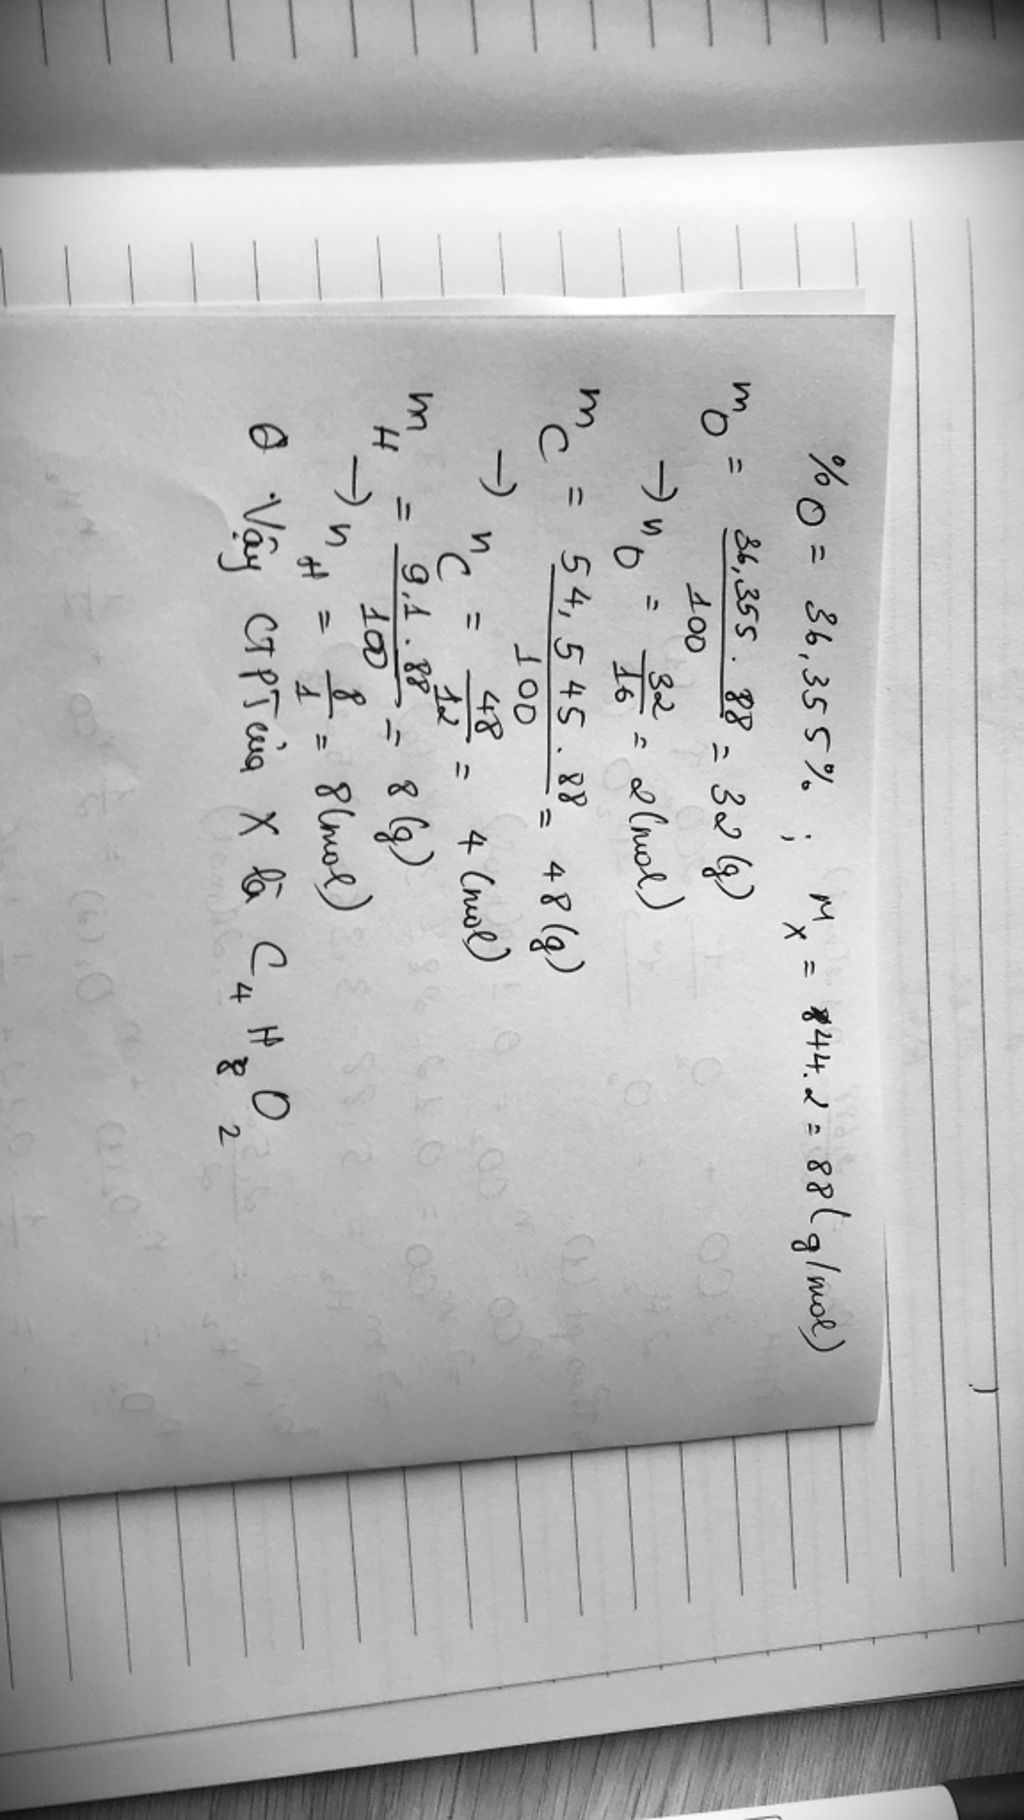 %O = 36,355% ; Mx = 44.2 = 88(g/mol)
mO = 36,355.88/100 = 32(g)
→ nO = 32/16 = 2(mol)
mC = 54,545.88/100 = 48(g)
→ nC = 48/12 = 4(mol)
mH = 9,1.88/100 = 8(g)
→ nH = 8/1 = 8(mol)
Vậy CTPT của X là C4H8O2